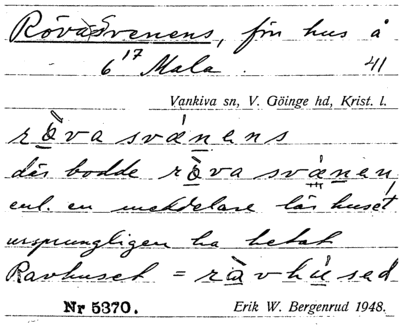 Röva Svenens, förr hus å
6 17 Mala. 41
Vankiva sn, V. Göinge hd, Krist. l.
rö̀va svánens
där bodde rö̀va svánen,
enl. en meddelare lär huset
ursprungligen ha hetat
Ravhuset = ràvhúsed
Nr 5370. Erik W. Bergenrud 1948.